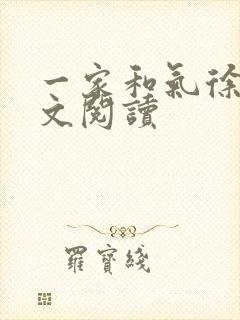 一家和氣徐
文閱讀
羅寶綫